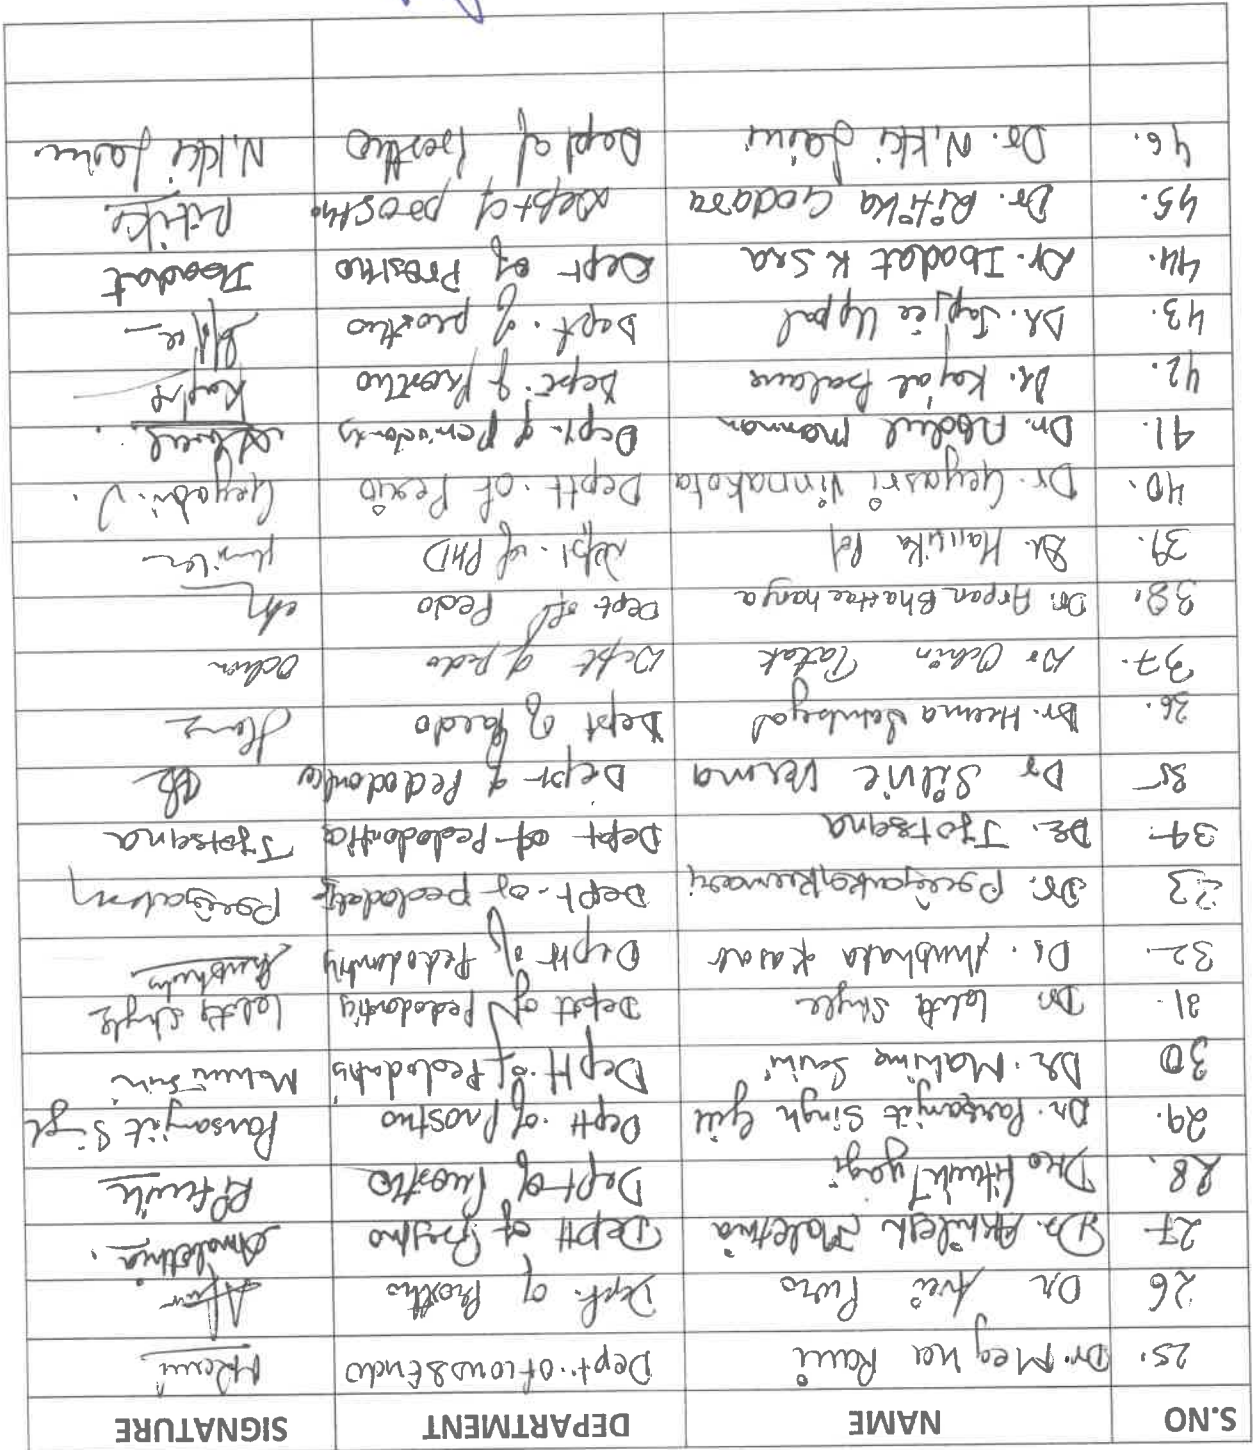 S.NO NAME DEPARTMENT SIGNATURE
25. Dr Megha Rani Dept. of cons & Endo
26 Dr Avii Puro Dept. of Prostho
27 Dr. Akhilesh Malethia Deptt of Prostho Amalethia.
28. Dept of Prostho
29. Dr. Parsanjit Singh Gill Deptt. of Prostho Parsanjit Singh
30 Dr. Mahima Saini Deptt. of Pedodontis
31. Dr Lalita Shyle Deptt of Pedodontics Lalita Shyle
32. Dr. Deptt of Pedodontics
33 Dr. Priyanka Kumari Dept. of pedodontics
34 Dr. Jyotsana Dept of Pedodontia Jyotsana
35 Dr Silvie Verma Dept of Pedodontics
36. Dr. Heena Sehgal Dept of Paedo
37. Dr Ochin Tatak Dept of pedo Ochin
38. Dr. Arpan Bhattacharya Dept of Pedo
39. Dr. Dept. of PHD
40. Dr. Geyasri Vinnakota Deptt. of Perio Geyasri. V.
41. Dr. Abdul Mannan Deptt. of Periodonts Abdul.
42. Dr. Kajal Dept. of Prostho Kajal
43. Dr. Uppal Dept. of prostho
44. Dr. Ibadat K Sra Dept of Prostho Ibadat
45. Dr. Ritika Godara Dept of prostho. Ritika
46. Dr. Nikki Saini Dept of Prostho Nikki Saini